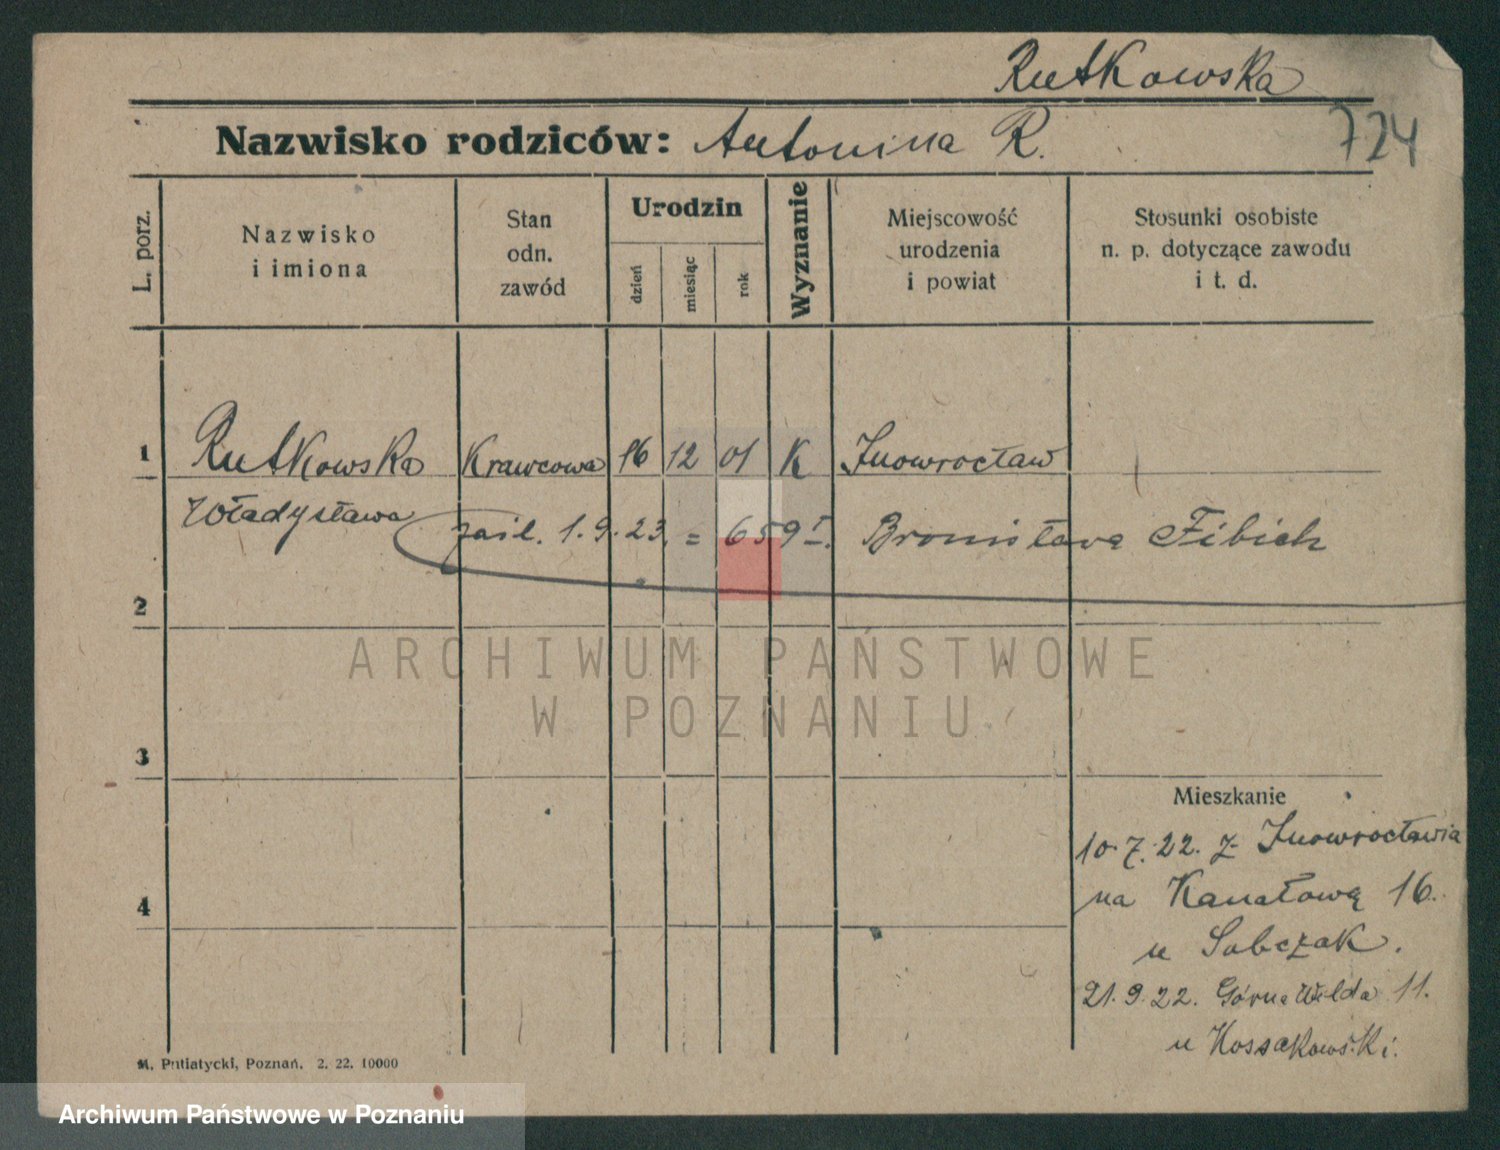 Rutkowska
Nazwisko rodziców: Antonina R. 724
L. porz.
Nazwisko
i imiona
Stan
odn.
zawód
Urodzin
dzień
miesiąc
rok
Wyznanie
Miejscowość
urodzenia
i powiat
Stosunki osobiste
n. p. dotyczące zawodu
i t. d.
1 Rutkowska Krawcowa 16 12 01 K Inowrocław
Władysława zaśl. 1.9.23. = 659 I. Bronisława Fibich
2
ARCHIWUM PAŃSTWOWE
W POZNANIU
3
Mieszkanie
10.7.22. z Inowrocławia
4 na Kanałową 16.
u Sobczak.
21.9.22. Górna Wilda 11.
u Kossakowski.
M. Putiatycki, Poznań. 2. 22. 10000
Archiwum Państwowe w Poznaniu